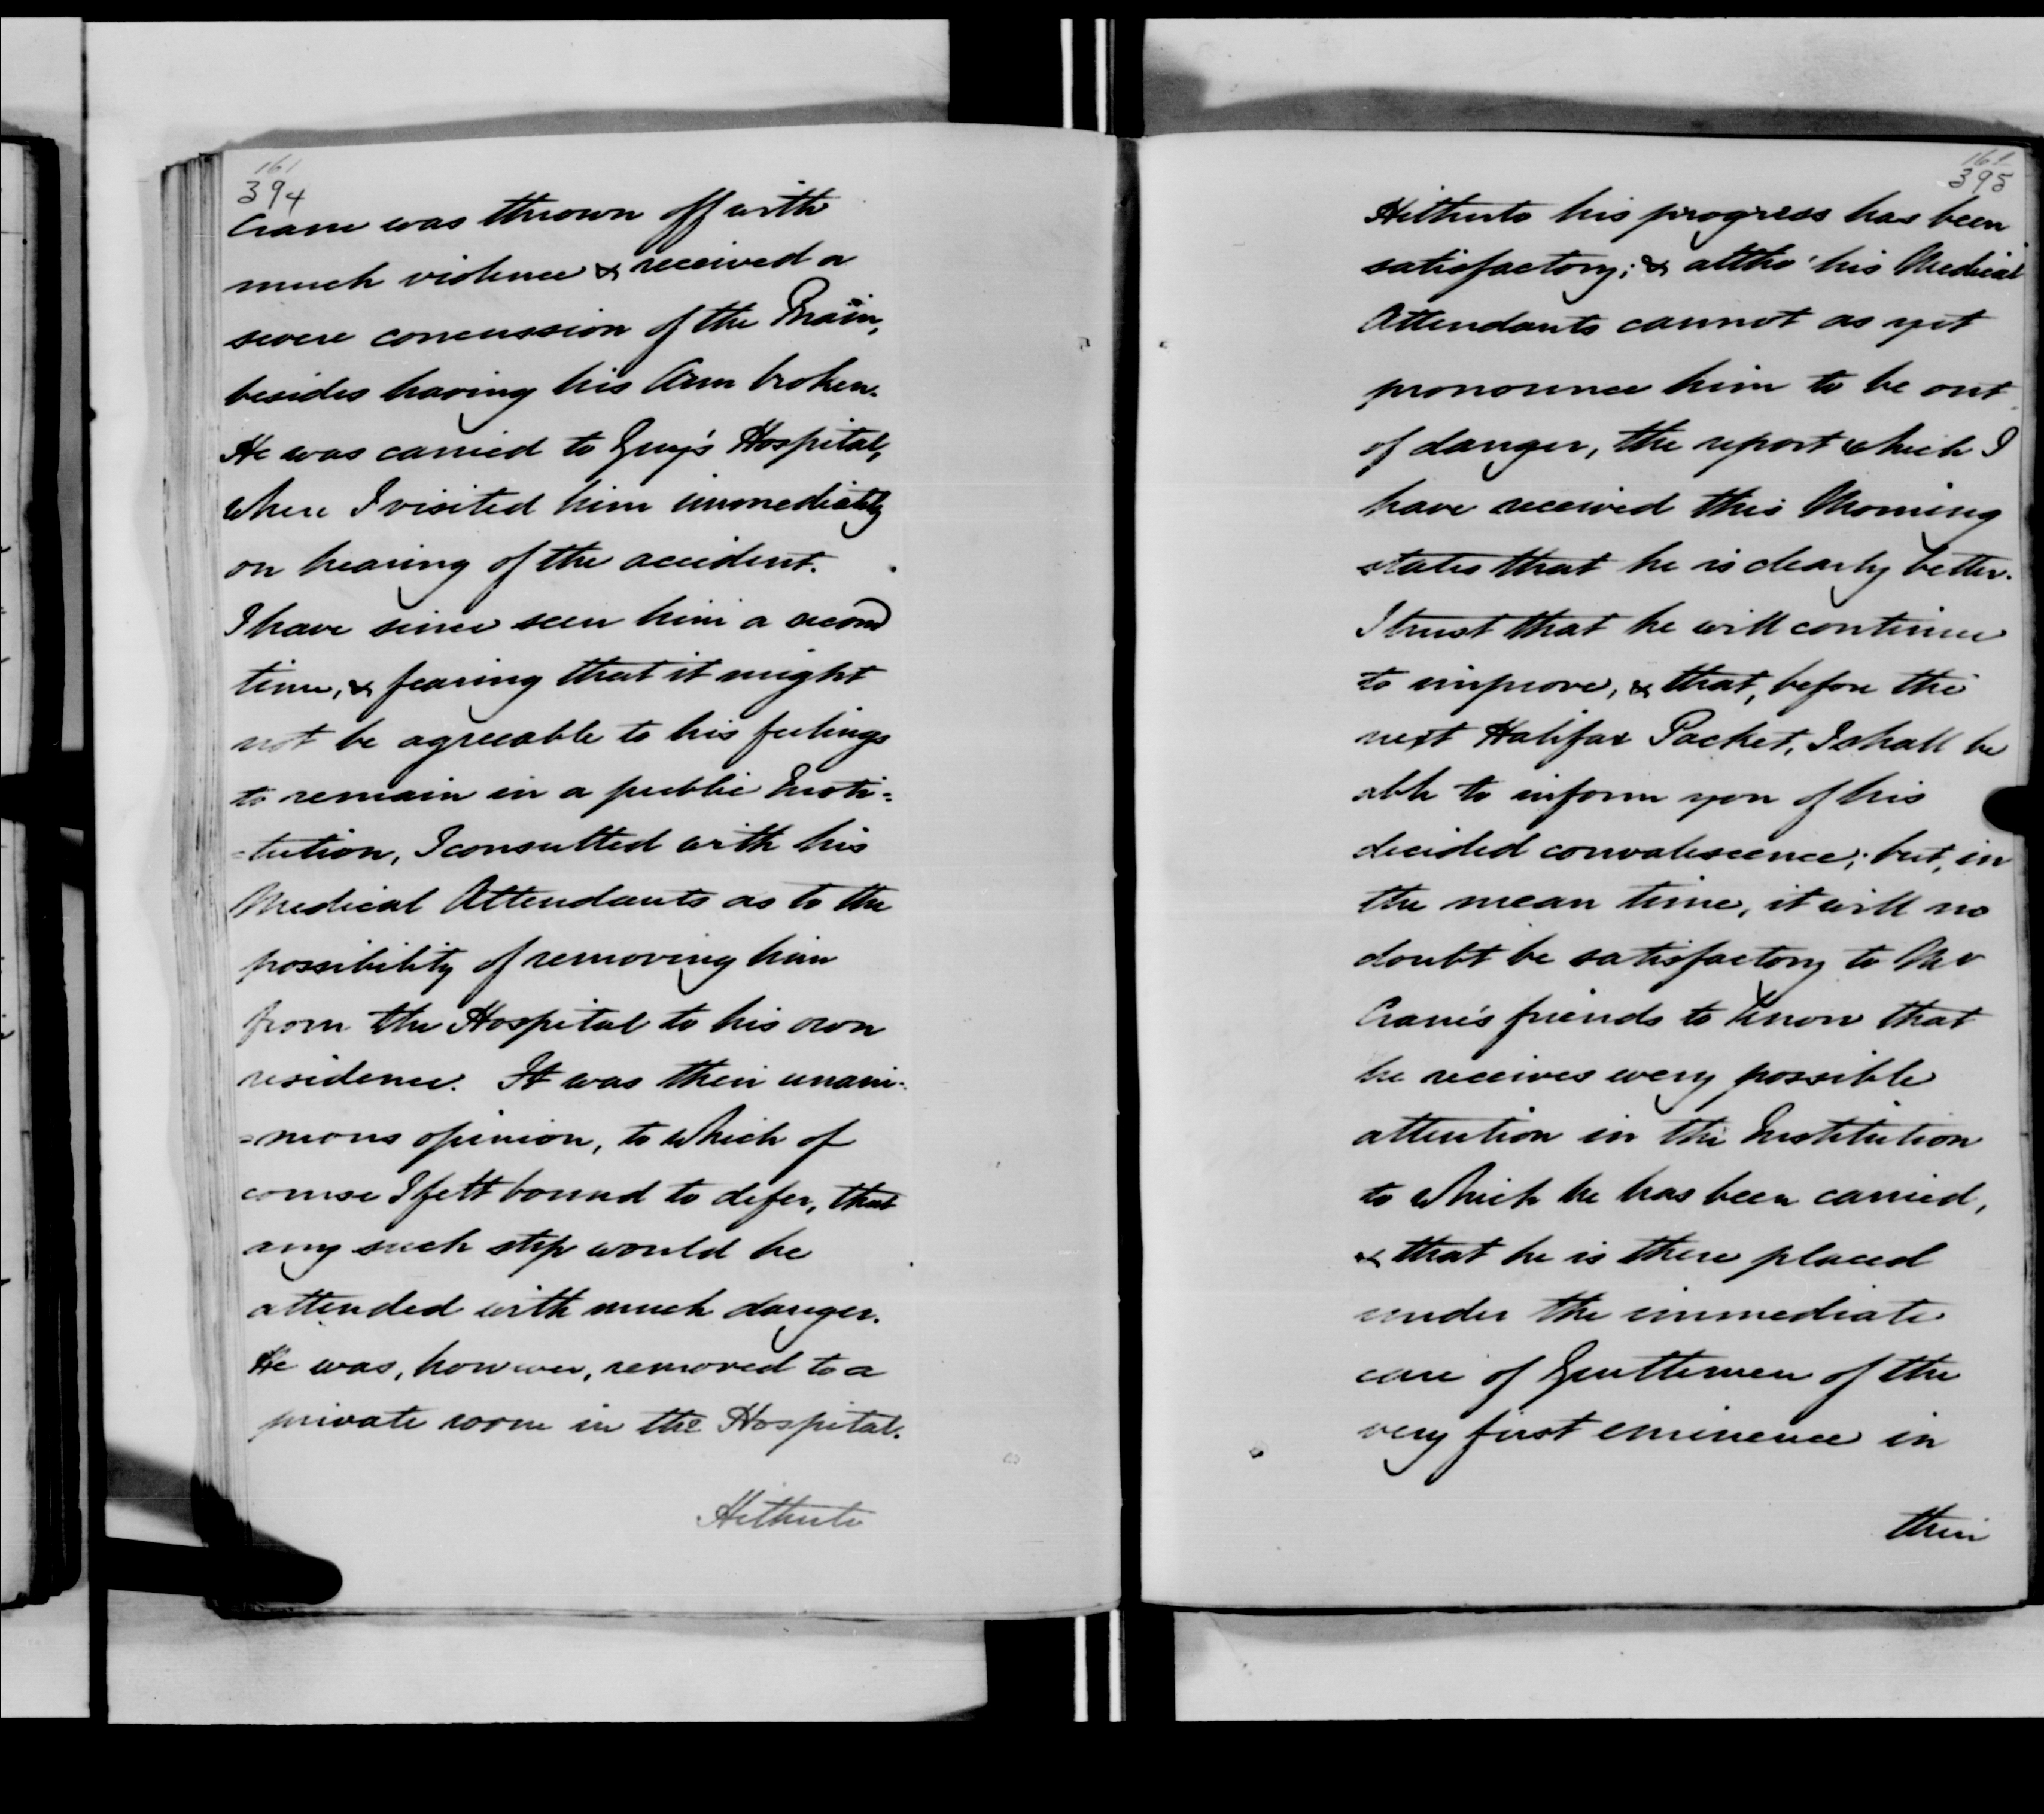 161
394
Crane was thrown off with
much violence & received a
severe concussion of the Brain,
besides having his Arm broken.
He was carried to Guy's Hospital,
where I visited him immediately
on hearing of the accident.
I have since seen him a second
time, & fearing that it might
not be agreeable to his feelings
to remain in a public Insti=
=tution, I consulted with his
Medical Attendants as to the
possibility of removing him
from the Hospital to his own
residence. It was their unani=
=mous opinion, to which of
course I felt bound to defer, that
any such step would be
attended with much danger.
He was, however, removed to a
private room in the Hospital.
Hitherto
161
395
Hitherto his progress has been
satisfactory; & altho' his Medical
Attendants cannot as yet
pronounce him to be out
of danger, the report which I
have received this Morning
states that he is clearly better.
I trust that he will continue
to improve, & that, before the
next Halifax Packet, I shall be
able to inform you of his
decided convalescence; but, in
the mean time, it will no
doubt be satisfactory to Mr
Crane's friends to know that
he receives every possible
attention in the Institution
to which he has been carried,
& that he is there placed
under the immediate
care of Gentlemen of the
very first eminence in
their